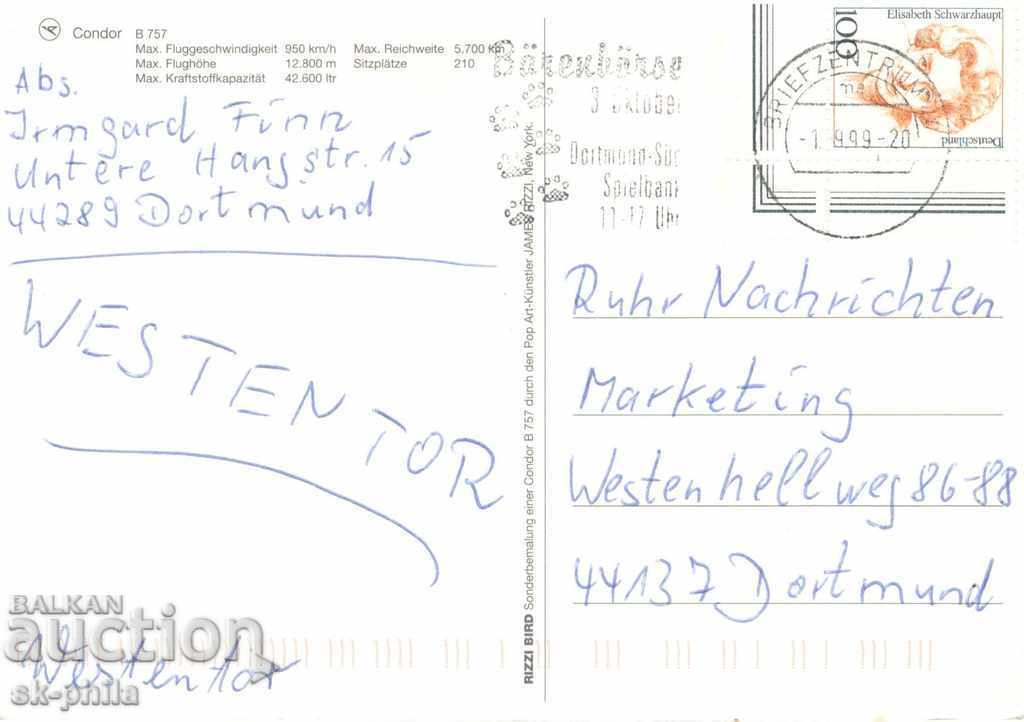 Condor B 757
Max. Fluggeschwindigkeit 950 km/h Max. Reichweite 5.700 km
Max. Flughöhe 12.800 m Sitzplätze 210
Max. Kraftstoffkapazität 42.600 ltr
Abs.
Irmgard Finn
Untere Hangstr. 15
44289 Dortmund
WESTENTOR
Westentor
RIZZI BIRD Sonderbemalung einer Condor B 757 durch den Pop Art-Künstler JAMES RIZZI, New York.
Bärenbörse
3. Oktober
Dortmund-Süd
Spielbank
11-17 Uhr
BRIEFZENTRUM
-1.9.99-20
100
Elisabeth Schwarzhaupt
Deutschland
Ruhr Nachrichten
Marketing
Westenhellweg 86-88
44137 Dortmund
BALKAN
auction
sk-phila